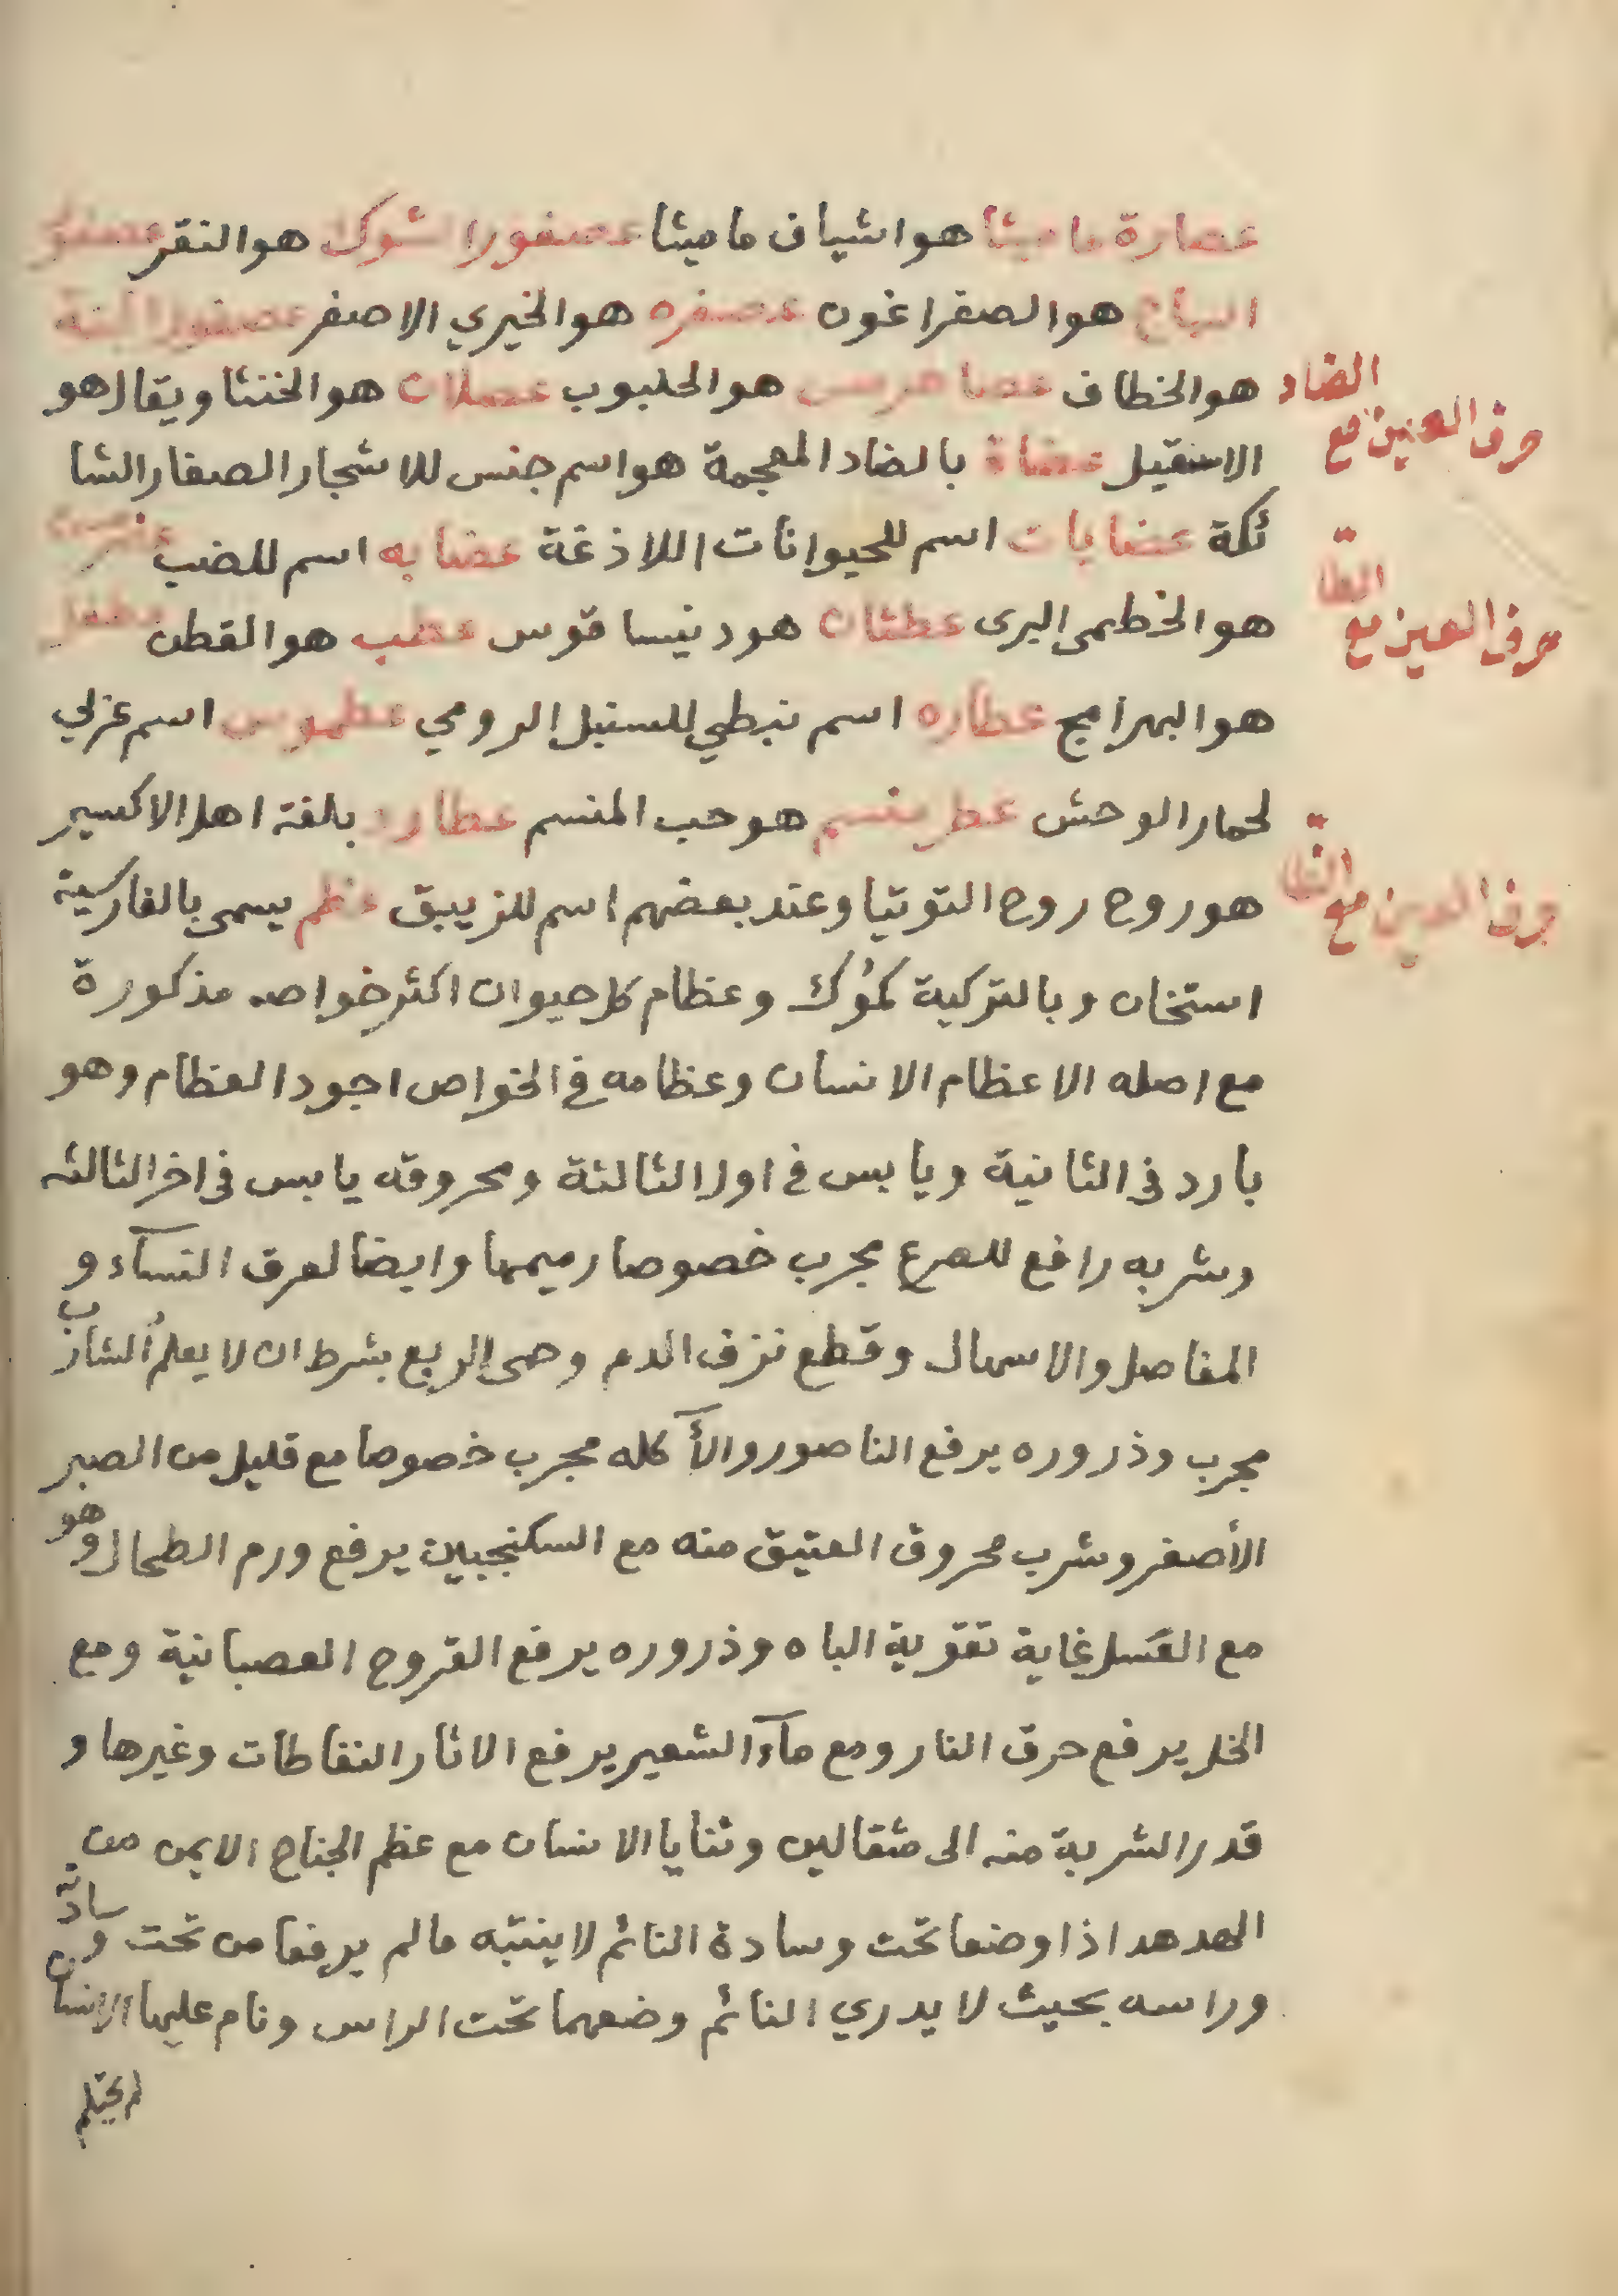 عصارة ماميثا هو اشياف ماميثا عصفور الشوك هو النقر عصفور
السياج هو الصفراغون عصفره هو الخيري الاصفر عصفور الجنة
هو الخطاف عصا هرمس هو الحلبوب عصلان هو الخنثا ويقال هو
الاسقيل عضاة بالضاد المعجمة هو اسم جنس للاشجار الصغار الشا
ئكة عضايات اسم للحيوانات اللاذغة عضابه اسم للضب
هو الخطمى البرى عطشان هو دنيسا قوس عطب هو القطن
هو البهرامج عطاره اسم نبطي للسنبل الرومي عطموس اسم عزلي
لحمار الوحش عطر ينسم هو حب المنسم عطارد بلغة اهل الاكسير
هو روح روح التوتيا وعند بعضهم اسم للزيبق عظم يسمى بالفارسية
استخان وبالتركية كموُك وعظام كل حيوان اكثر خواصه مذكورة
مع اصله الا عظام الانسان وعظامه في الخواص اجود العظام وهو
بارد فى الثانية ويابس في اول الثالثة ومحروقه يابس فى اخر الثالثه
وشربه رافع للصرع مجرب خصوصا رميمها وايضا لعرق النسآء و
المفاصل والاسهال وقطع نزف الدم وحمى الربع بشرط ان لا يعلمُ الشارب
مجرب وذروره يرفع الناصور والأٓكله مجرب خصوصا مع قليل من الصبر
الأصفر وشرب محروق العتيق منه مع السكنجبين يرفع ورم الطحال وهو
مع العَسل غاية تقوية الباه وذروره يرفع القروح العصبانية ومع
الخل يرفع حرق النار ومع مآء الشعير يرفع الاثار النفاطات وغيرها و
قدر الشربة منه الى مثقالين وثنايا الانسان مع عظم الجناح الايمن من
الهدهد اذا وضعا تحت وسادة النائم لا ينتبه مالم يرفعا من تحت وسادة
وراسه بحيث لا يدري النائم وضعهما تحت الراس ونام عليها الانسان
لم يحتلم
حرف العين مع الضاد
حرف العين مع الطا
حرف العين مع الظا